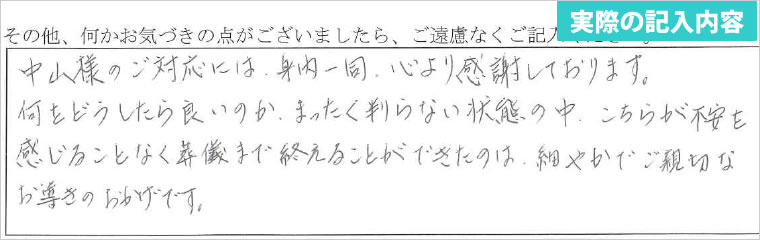 実際の記入内容
その他、何かお気づきの点がございましたら、ご遠慮なくご記入ください。
中山様のご対応には、身内一同、心より感謝しております。
何をどうしたら良いのか、まったく判らない状態の中、こちらが不安を
感じることなく葬儀まで終えることができたのは、細やかでご親切な
お導きのおかげです。